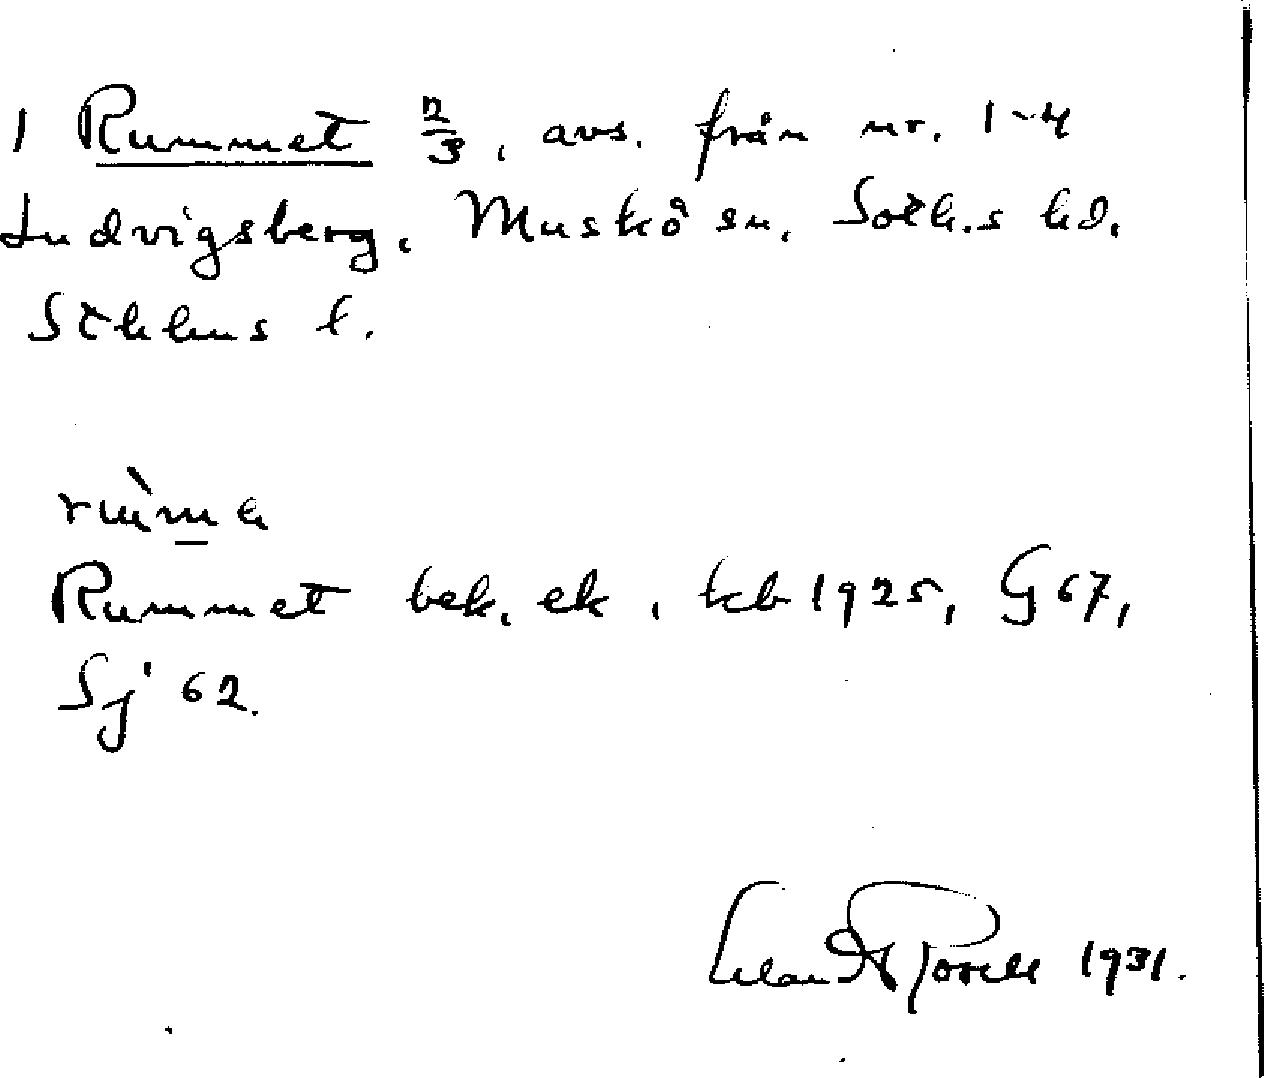 1 Rummet 2/3, avs. från nr. 1-4
Ludvigsberg, Muskö sn, Soth.s hd.
Sthlms l.
rùm̲e
Rummet bek. ek. kb 1925, G 67,
Sj 62.
1931.